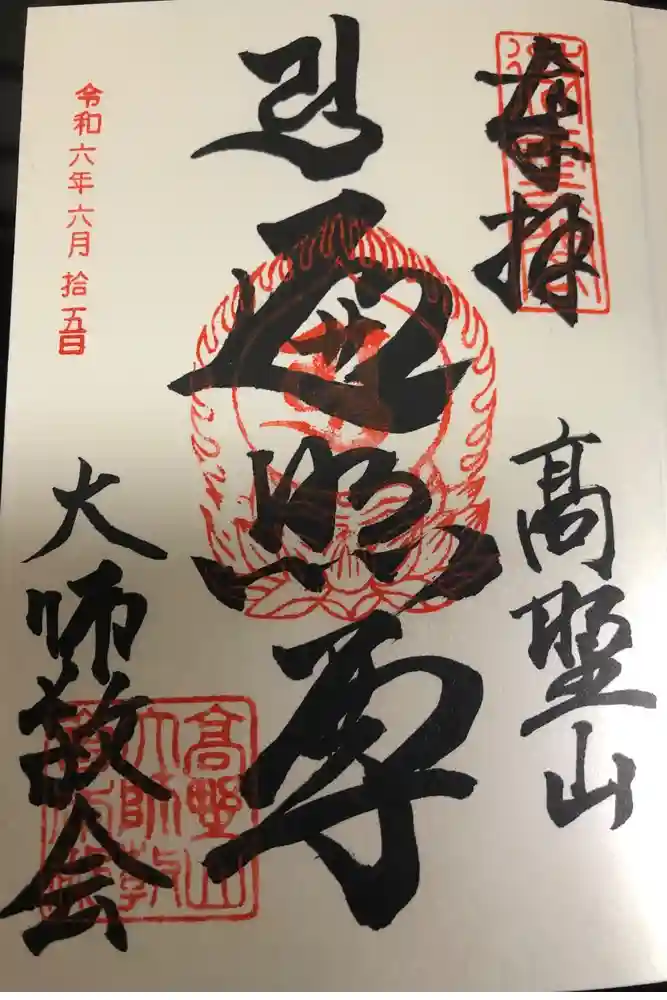 奉拝
高野山
遍照尊
令和六年六月拾五日
大師教会
高野山
大師教